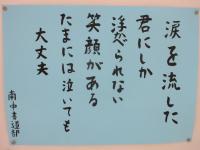 涙を流した
君にしか
浮べられない
笑顔がある
たまには泣いても
大丈夫
南中書道部